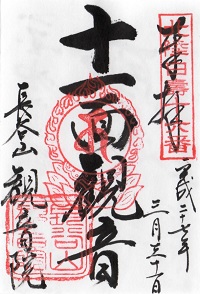 奉拝
平成二十七年
三月三十一日
十一面観音
長谷山 観音院